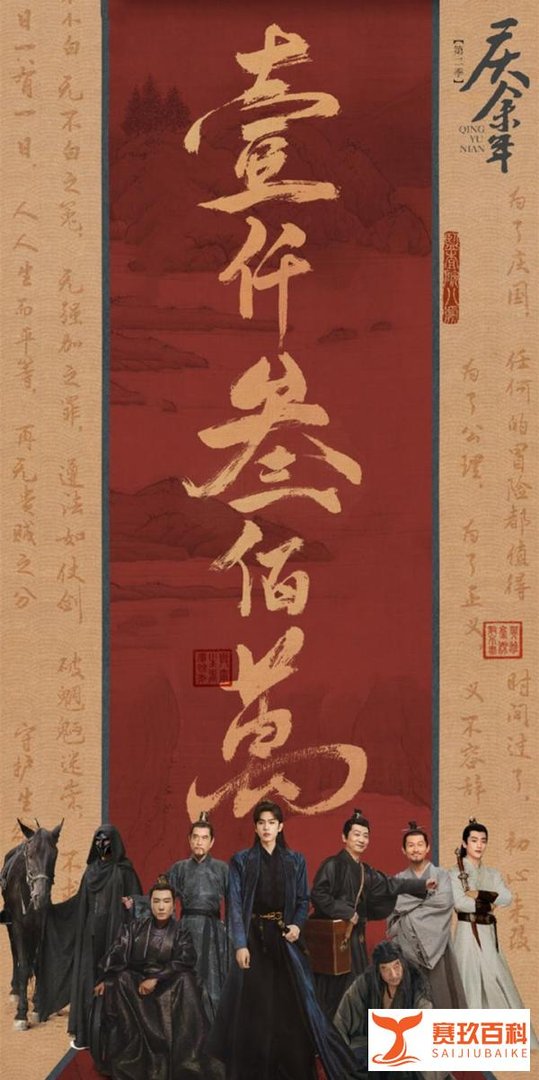 庆余年
【第二季】
QING
YU
NIAN
壹仟叁佰萬
为了庆国，任何的冒险都值得
为了公理，为了正义，义不容辞
时间过了，初心未改
无不白之冤，无强加之罪，遵法如仗剑，破魍魉迷祟，不求
日一有一日
人人生而平等，再无贵贱之分
守护生
赛玖百科
SAIJIUBAIKE